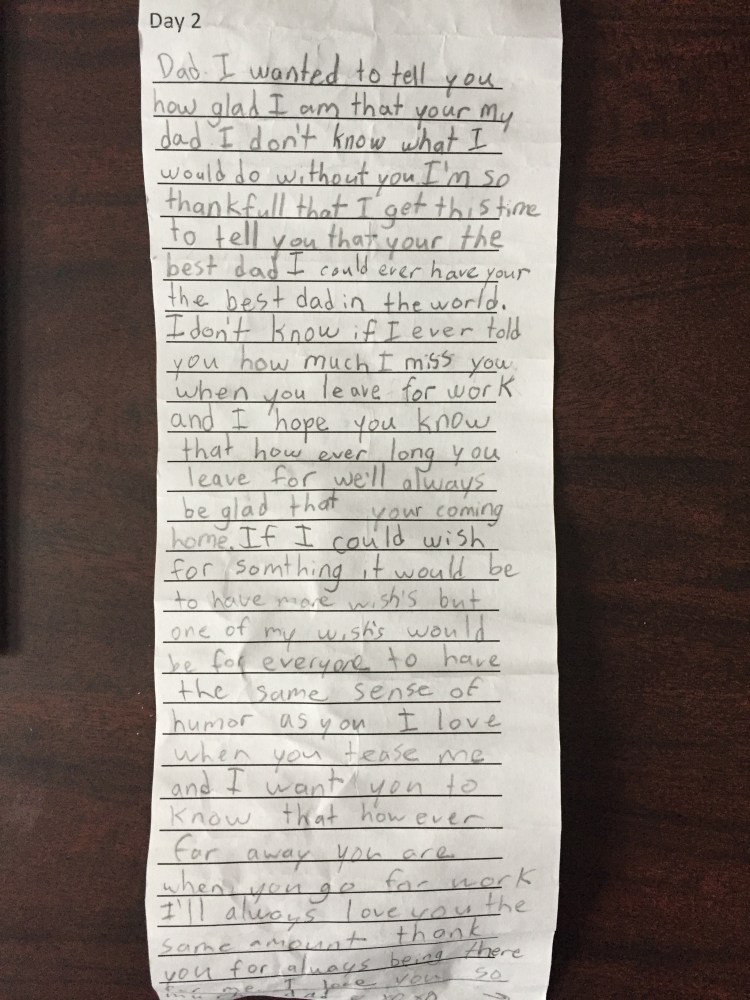 Day 2
Dad I wanted to tell you
how glad I am that your my
dad I don't know what I
would do without you I'm so
thankfull that I get this time
to tell you that your the
best dad I could ever have your
the best dad in the world.
I don't know if I ever told
you how much I miss you
when you leave for work
and I hope you know
that how ever long you
leave for we'll always
be glad that your coming
home. If I could wish
for somthing it would be
to have more wish's but
one of my wish's would
be for everyone to have
the same sense of
humor as you I love
when you tease me
and I want you to
know that how ever
far away you are
when you go for work
I'll always love you the
same amount thank
you for always being there
for me I love you so